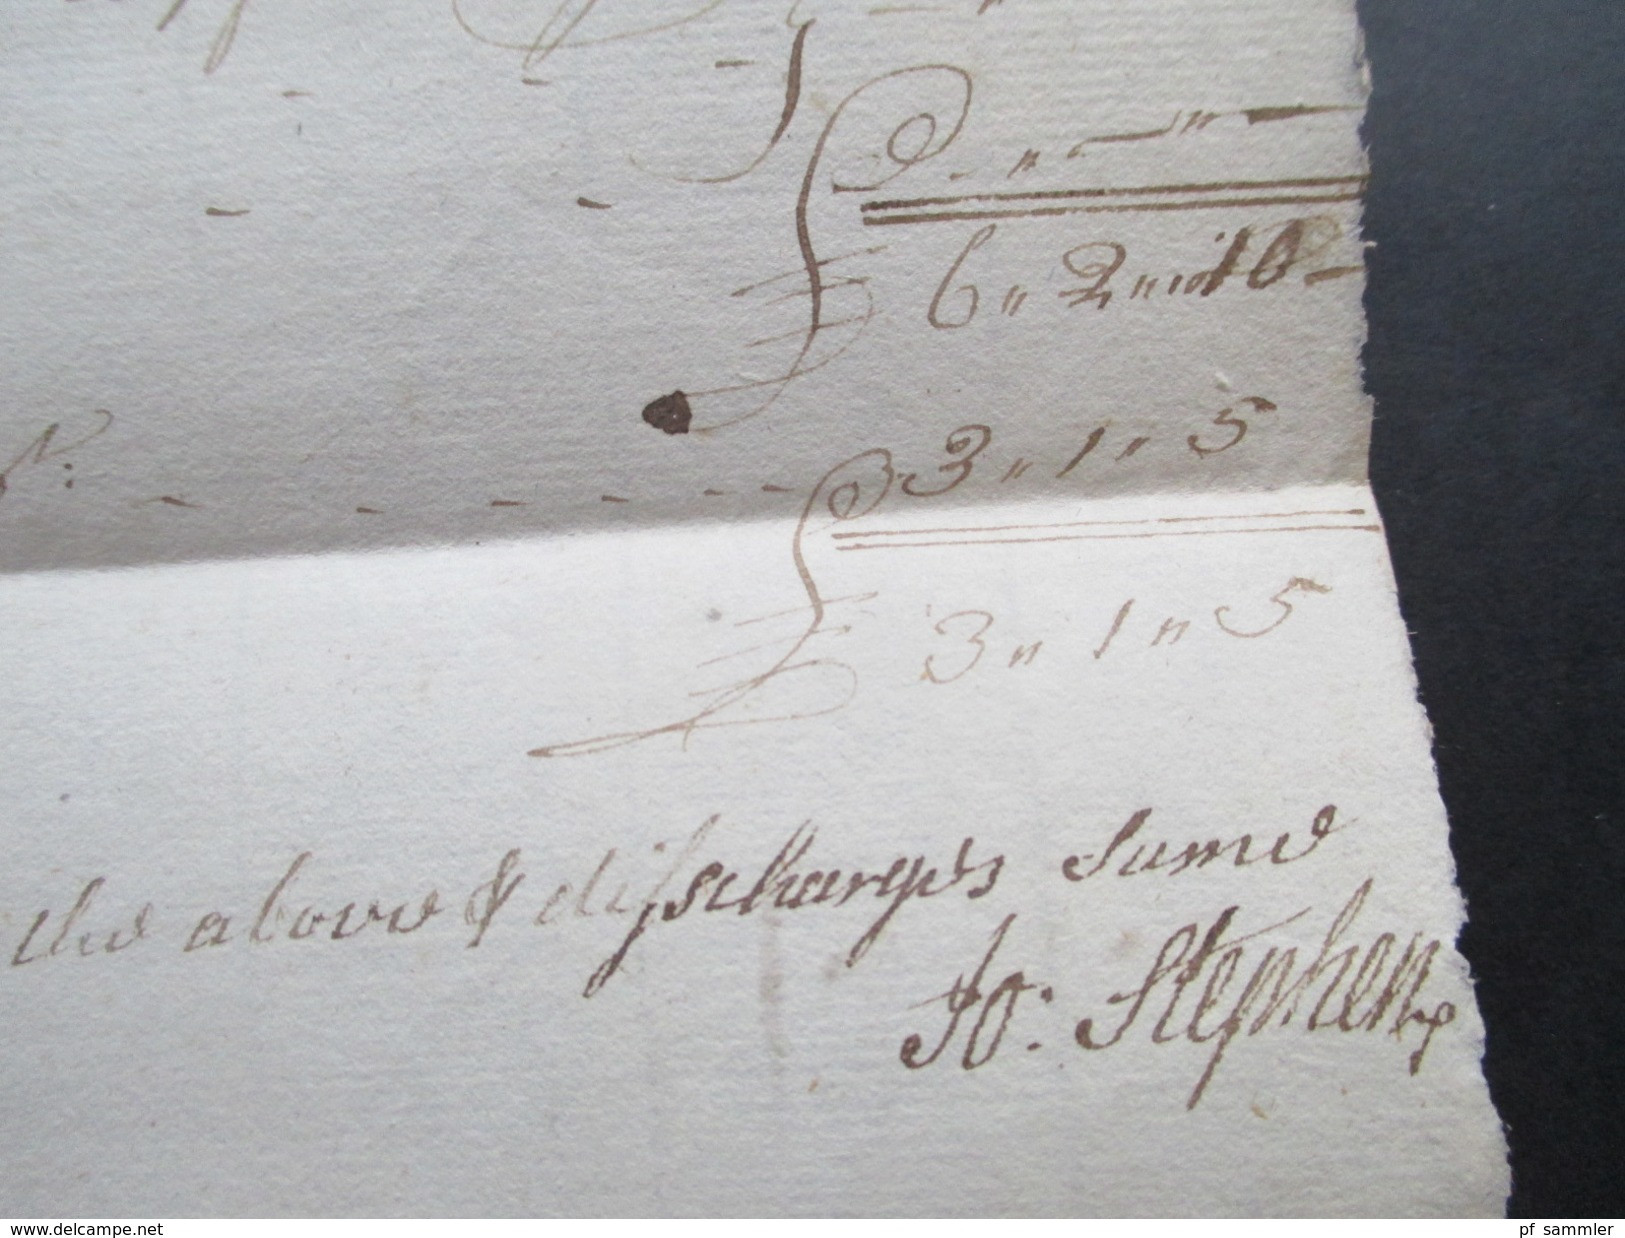 6 " 2 "
3 " 1 " 5
3 " 1 " 5
the above & disscharges same
Jo: Stephen
www.delcampe.net
pf_sammler